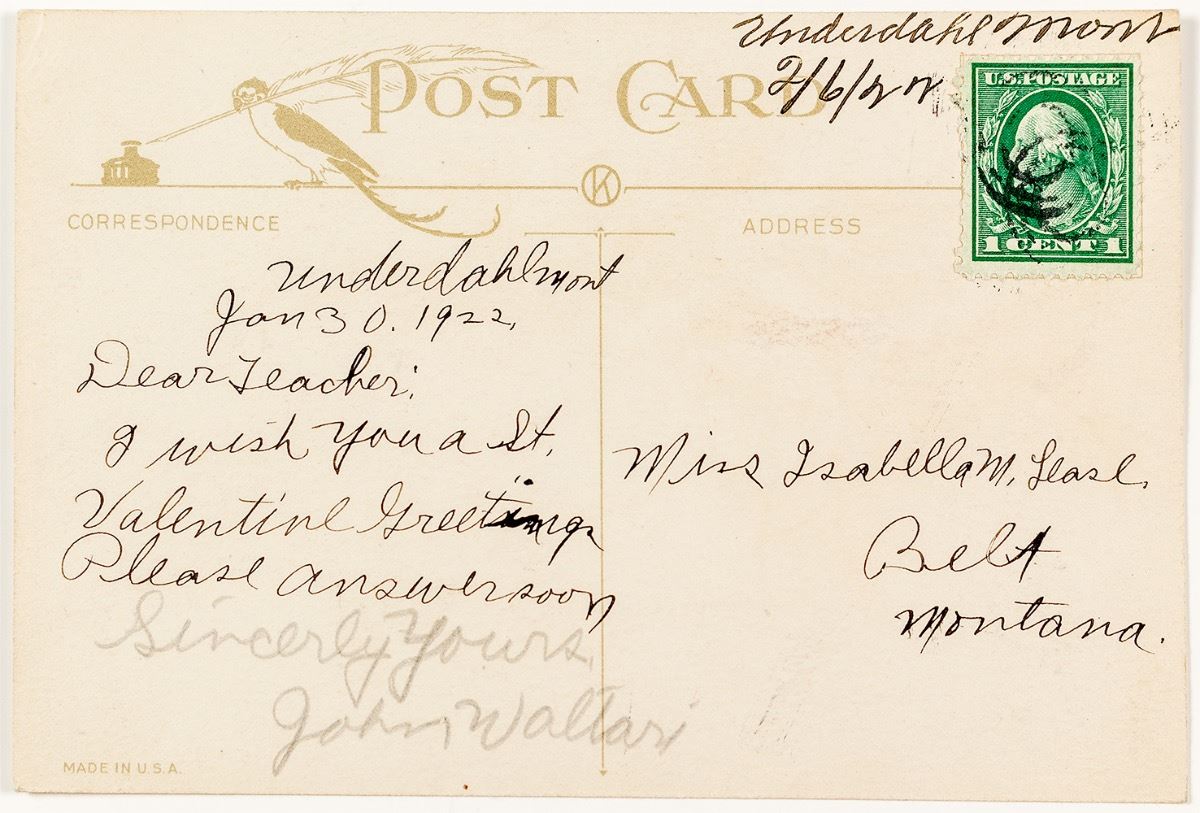 Underdahl Mont
2/6/22
POST CARD
U.S. POSTAGE
1 CENT 1
K
CORRESPONDENCE
ADDRESS
Underdahl mont
Jan 30. 1922,
Dear Teacher:
I wish You a St.
Valentine Greetings
Please answer soon
Sincerly Yours,
John Waltari
Miss Isabella M. Lease.
Belt
Montana.
MADE IN U.S.A.